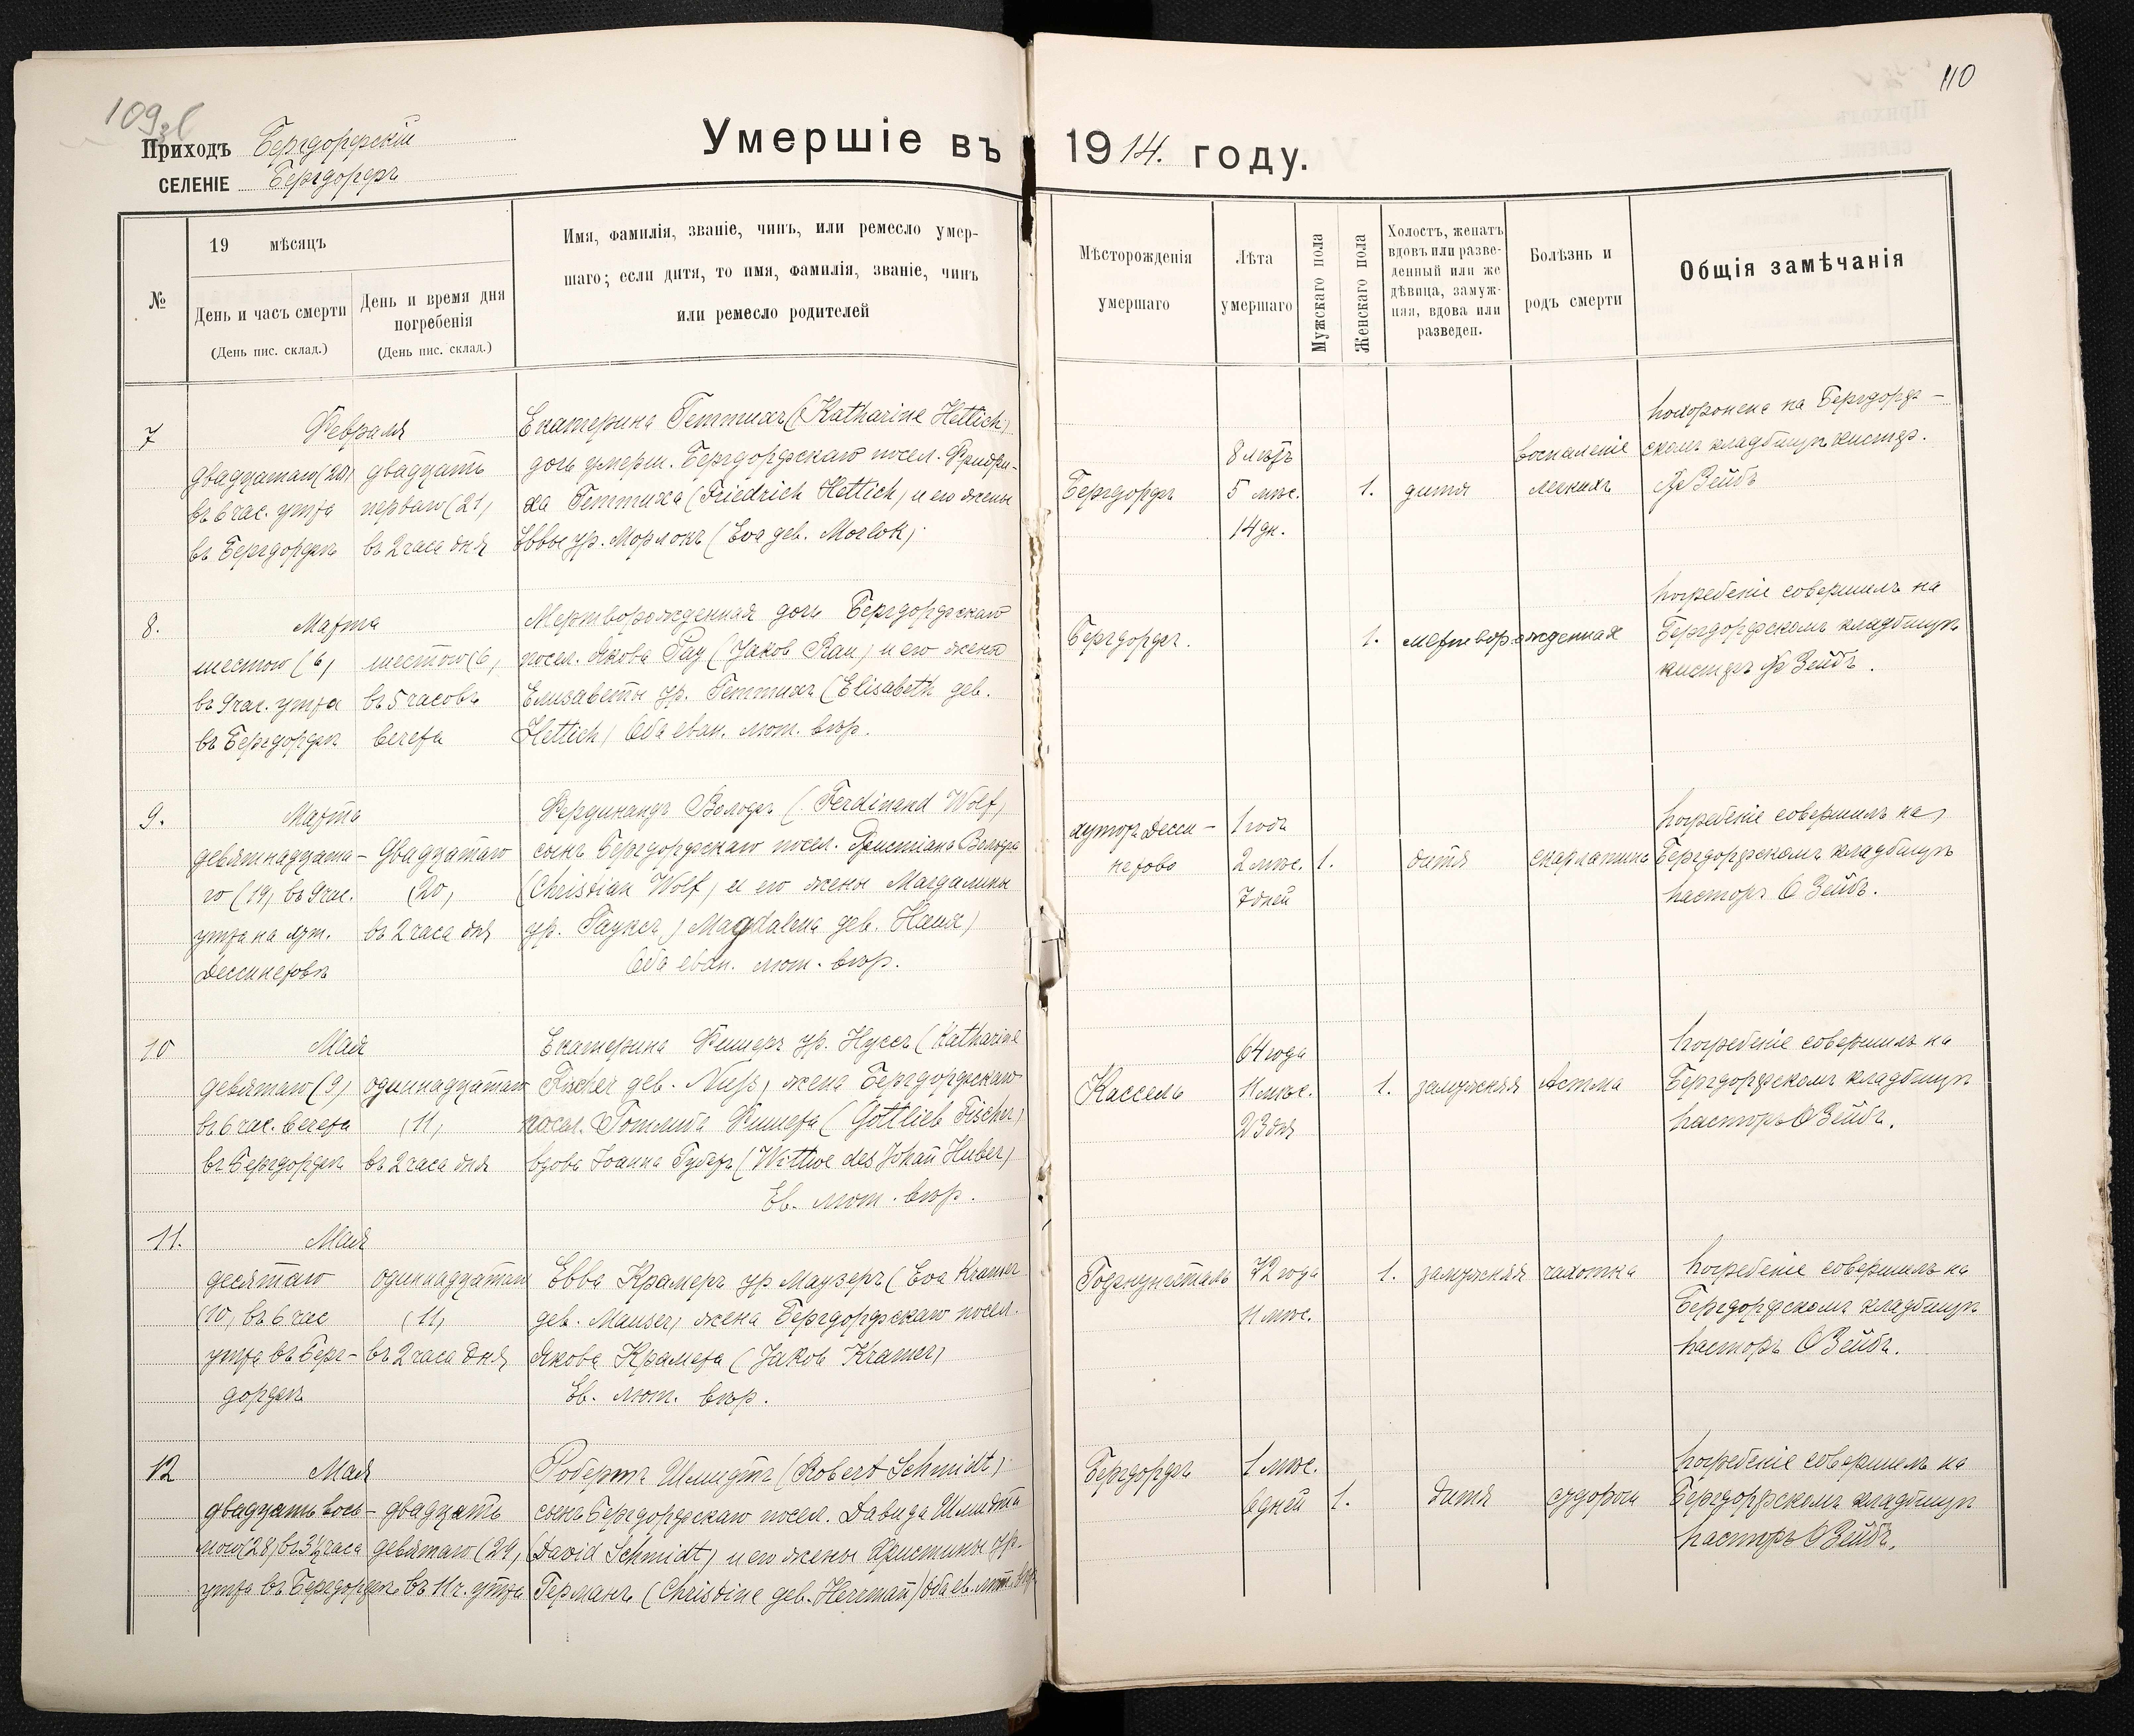 109 об
110
Приходъ Бергдорфскій
СЕЛЕНІЕ Бергдорфъ
Умершіе въ 1914. году.
№
19 мѣсяцъ
День и часъ смерти
(День пис. склад.)
День и время дня
погребенія
(День пис. склад.)
Имя, фамилія, званіе, чинъ, или ремесло умер-
шаго; если дитя, то имя, фамилія, званіе, чинъ
или ремесло родителей
Мѣсторожденія
умершаго
Лѣта
умершаго
Мужскаго пола
Женскаго пола
Холостъ, женатъ
вдовъ или разве-
денный или же
дѣвица, замуж-
няя, вдова или
разведен.
Болѣзнь и
родъ смерти
Общія замѣчанія
7
Февраля
двадцатаго (20)
въ 6 час. утра
въ Бергдорфѣ
двадцать
перваго (21)
въ 2 часа дня
Екатерина Геттихъ (Katharine Hettich)
дочь умерш. Бергдорфскаго посел. Фридри-
ха Геттиха (Friedrich Hettich) и его жены
Еввы ур. Морлокъ (Eva geb. Morlok)
Бергдорфъ
8 лѣтъ
5 мѣс.
14 дн.
1.
дитя
воспаленіе
легкихъ
похоронена на Бергдорф-
скомъ кладбищѣ кистеръ.
Зейбъ
8.
Марта
шестого (6)
въ 9 час. утра
въ Бергдорфѣ
шестого (6)
въ 5 часовъ
вечера
Мертворожденная дочь Бергдорфскаго
посел. Якова Рау (Jakob Rau) и его жены
Елизаветы ур. Геттихъ (Elisabeth geb.
Hettich) Оба еван. лют. вѣр.
Бергдорфъ.
1.
мертворожденная
погребеніе совершилъ на
Бергдорфскомъ кладбищѣ
кистеръ Зейбъ.
9.
Марта
девятнадцата-
го (19) въ 9 час.
утра на хут.
Дессинеровѣ
двадцатаго
(20)
въ 2 часа дня
Фердинандъ Вольфъ (Ferdinand Wolf)
сынъ Бергдорфскаго посел. Христіана Вольфа
(Christian Wolf) и его жены Магдалины
ур. Гаукъ (Magdalena geb. Hauk)
Оба еван. лют. вѣр.
хуторъ Десси-
нерово
1 годъ
2 мѣс.
7 дней
1.
дитя
скарлатина
погребеніе совершилъ на
Бергдорфскомъ кладбищѣ
пасторъ О Зейбъ.
10
Мая
девятаго (9)
въ 6 час. вечера
въ Бергдорфѣ
одиннадцатаго
(11)
въ 2 часа дня
Екатерина Фишеръ ур. Нуссъ (Katharine
Fischer geb. Nuß) жена Бергдорфскаго
посел. Готлиба Фишера (Gottlieb Fischer)
вдова Іоанна Губеръ (Wittwe des Johañ Huber)
Ев. лют. вѣр.
Кассель
64 года
11 мѣс.
23 дня
1.
замужняя
Астма
погребеніе совершилъ на
Бергдорфскомъ кладбищѣ
пасторъ О Зейбъ.
11.
Мая
десятаго
(10) въ 6 час
утра въ Берг-
дорфѣ
одиннадцатаго
(11)
въ 2 часа дня
Евва Крамеръ ур Маузеръ (Eva Kramer
geb. Mauser) жена Бергдорфскаго посел.
Якова Крамера (Jakob Kramer)
Ев. лют. вѣр.
72 года
11 мѣс.
1.
замужняя
чахотка
погребеніе совершилъ на
Бергдорфскомъ кладбищѣ
пасторъ О Зейбъ.
12
Мая
двадцать вось-
мого (28) въ 3½ часа
утра въ Бергдорфѣ
двадцать
девятаго (29)
въ 11 ч. утра
Робертъ Шмидтъ (Robert Schmidt)
сынъ Бергдорфскаго посел. Давида Шмидта
(David Schmidt) и его жены Христины ур.
Германъ (Christine geb. Herrmañ) Оба ев. лют. вѣр
Бергдорфъ
1 мѣс.
6 дней
1.
дитя
судороги
погребеніе совершилъ на
Бергдорфскомъ кладбищѣ
пасторъ О Зейбъ.